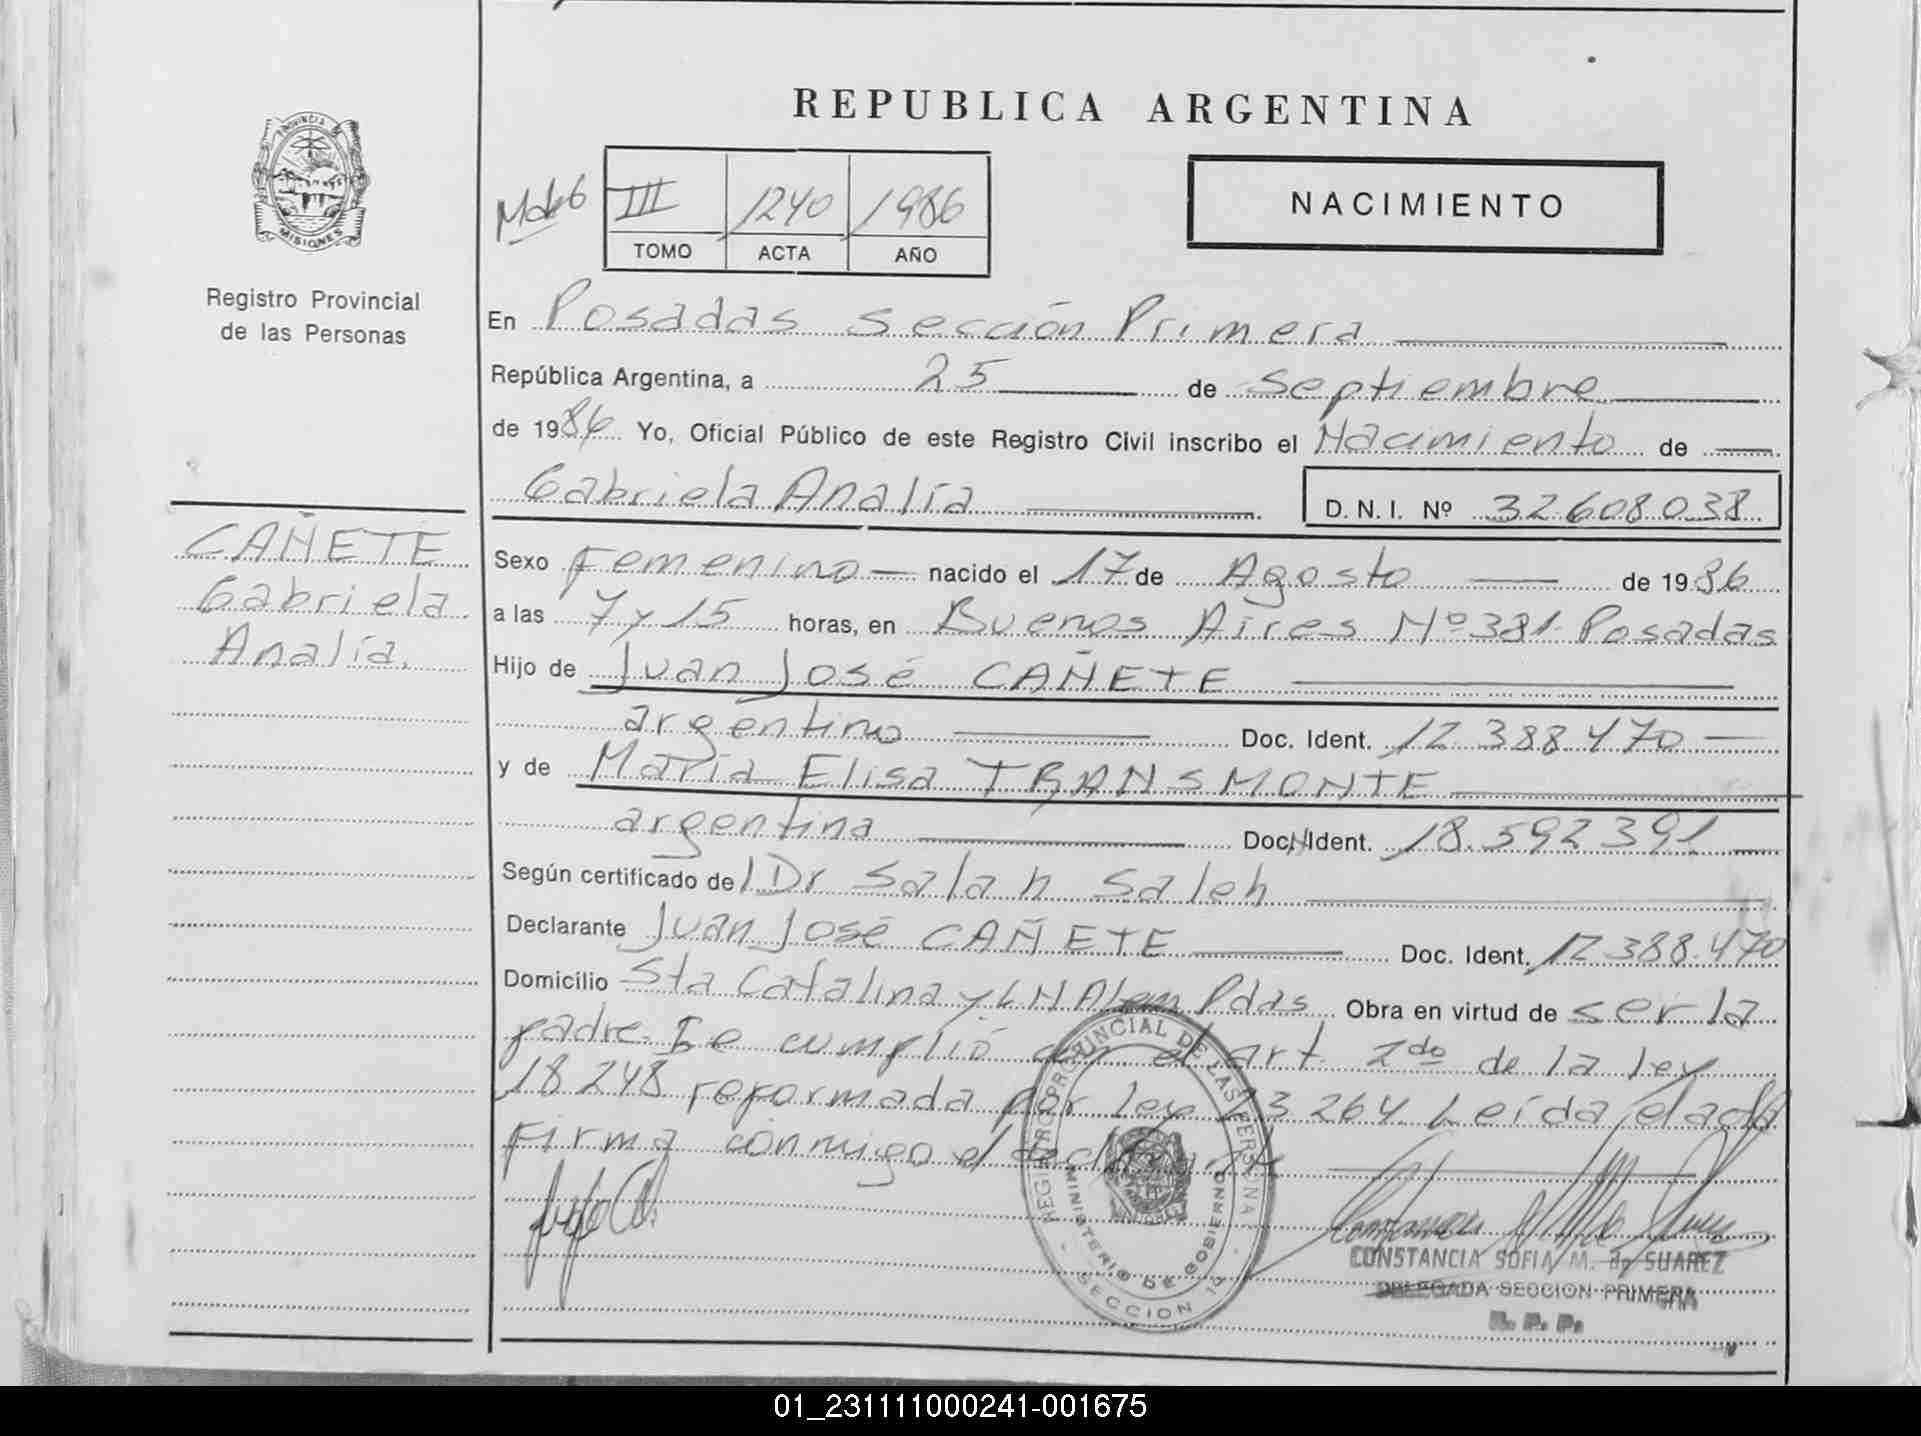 REPUBLICA ARGENTINA
PROVINCIA
MISIONES
Registro Provincial
de las Personas
III 1240 1986
TOMO ACTA AÑO
NACIMIENTO
En Posadas Sección Primera
República Argentina, a 25 de Septiembre
de 1986 Yo, Oficial Público de este Registro Civil inscribo el Nacimiento de
Gabriela Analía
D.N.I. Nº 32608038
CAÑETE
Gabriela
Analía.
Sexo Femenino nacido el 17 de Agosto de 1986
a las 7 y 15 horas, en Buenos Aires Nº 381 Posadas
Hijo de Juan José CAÑETE
argentino Doc. Ident. 12.388.470
y de María Elisa TRANSMONTE
argentina Doc. Ident. 18.592.391
Según certificado del Dr Salah Saleh
Declarante Juan José CAÑETE Doc. Ident. 12.388.470
Domicilio Sta Catalina y L N Alem Pdas Obra en virtud de ser la
padre. Se cumplió con el art. 2do de la ley
18.248 reformada por ley 23.264. Leída el acta
Firma conmigo el declarante
REGISTRO PROVINCIAL DE LAS PERSONAS
MINISTERIO DE GOBIERNO
SECCION 1ª
CONSTANCIA SOFIA M. de SUAREZ
DELEGADA SECCION PRIMERA
R. P. P.
01_231111000241-001675